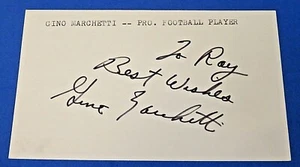 GINO MARCHETTI -- PRO. FOOTBALL PLAYER
To Ray
Best Wishes
Gino Marchetti